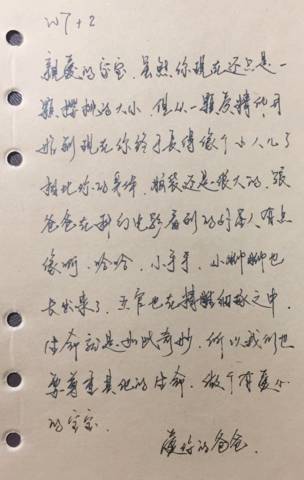 W7+2
親愛的宝宝，虽然你现在还只是一
颗樱桃的大小，但从一颗受精卵开
始到现在你终于長得像个小人儿了
相比你的身体，脑袋还是很大的，跟
爸爸在科幻电影看到的外星人有点
像啊，哈哈，小手手，小脚脚也
长出来了，五官也在精雕细琢之中，
生命就是如此奇妙，所以我们也
要尊重其他的生命，做个有爱心
的宝宝。
愛你的爸爸.